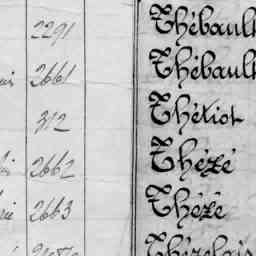 2291 Thébault
2661 Thébault
312 Thétiot
2662 Thézé
2663 Thézé